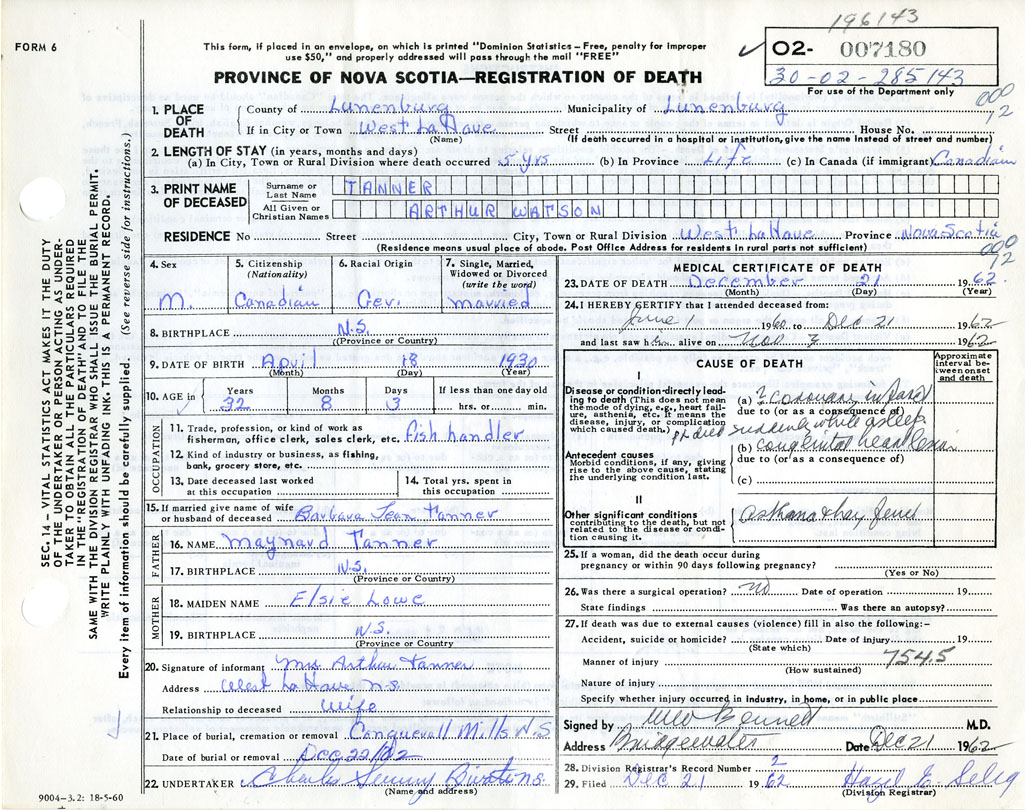 196143
FORM 6
This form, if placed in an envelope, on which is printed "Dominion Statistics – Free, penalty for improper
use $50," and properly addressed will pass through the mail "FREE"
✓ 02- 007180
30-02-285143
For use of the Department only
PROVINCE OF NOVA SCOTIA—REGISTRATION OF DEATH
000
92
1. PLACE OF DEATH
County of Lunenburg Municipality of Lunenburg
If in City or Town West LaHave Street House No.
(Name) (If death occurred in a hospital or institution, give the name instead of street and number)
2. LENGTH OF STAY (in years, months and days)
(a) In City, Town or Rural Division where death occurred 5 yrs (b) In Province Life (c) In Canada (if immigrant) Canadian
3. PRINT NAME OF DECEASED
Surname or Last Name TANNER
All Given or Christian Names ARTHUR WATSON
RESIDENCE No Street City, Town or Rural Division West LaHave Province Nova Scotia
(Residence means usual place of abode. Post Office Address for residents in rural parts not sufficient)
000
92
4. Sex M.
5. Citizenship (Nationality) Canadian
6. Racial Origin Ger.
7. Single, Married, Widowed or Divorced (write the word) married
8. BIRTHPLACE N.S.
(Province or Country)
9. DATE OF BIRTH April 18 1930
(Month) (Day) (Year)
10. AGE in Years 32 Months 8 Days 3 If less than one day old hrs. or min.
OCCUPATION
11. Trade, profession, or kind of work as fisherman, office clerk, sales clerk, etc. Fish handler
12. Kind of industry or business, as fishing, bank, grocery store, etc.
13. Date deceased last worked at this occupation
14. Total yrs. spent in this occupation
15. If married give name of wife or husband of deceased Barbara Jean Tanner
FATHER
16. NAME Maynard Tanner
17. BIRTHPLACE N.S.
(Province or Country)
MOTHER
18. MAIDEN NAME Elsie Lowe
19. BIRTHPLACE N.S.
(Province or Country)
20. Signature of informant Mrs Arthur Tanner
Address West LaHave N.S.
Relationship to deceased wife
21. Place of burial, cremation or removal Conquerall Mills N.S
Date of burial or removal Dec. 22/62
22. UNDERTAKER Charles N.S.
(Name and address)
MEDICAL CERTIFICATE OF DEATH
23. DATE OF DEATH December 21 1962
(Month) (Day) (Year)
24. I HEREBY CERTIFY that I attended deceased from:
June 1 1960 to Dec 21 1962
and last saw him alive on Nov 1962
CAUSE OF DEATH
Approximate interval between onset and death
I
Disease or condition directly leading to death (This does not mean the mode of dying, e.g., heart failure, asthenia, etc. It means the disease, injury, or complication which caused death)
(a) ? coronary infarct
due to (or as a consequence of)
pt died suddenly while asleep
Antecedent causes
Morbid conditions, if any, giving rise to the above cause, stating the underlying condition last.
(b) congenital heart lesion
due to (or as a consequence of)
(c)
II
Other significant conditions contributing to the death, but not related to the disease or condition causing it.
asthma & hay fever
25. If a woman, did the death occur during pregnancy or within 90 days following pregnancy?
(Yes or No)
26. Was there a surgical operation? no Date of operation 19
State findings Was there an autopsy?
27. If death was due to external causes (violence) fill in also the following:-
Accident, suicide or homicide? Date of injury 19
(State which)
Manner of injury 754.5
(How sustained)
Nature of injury
Specify whether injury occurred in industry, in home, or in public place
Signed by Bennett M.D.
Address Bridgewater Date Dec 21 1962
28. Division Registrar's Record Number 2
29. Filed Dec 21 1962 Hazel E. Selig
(Division Registrar)
SEC. 14 – VITAL STATISTICS ACT MAKES IT THE DUTY
OF THE UNDERTAKER OR PERSON ACTING AS UNDER-
TAKER TO OBTAIN ALL THE PARTICULARS REQUIRED
IN THE "REGISTRATION OF DEATH" AND TO FILE THE
SAME WITH THE DIVISION REGISTRAR WHO SHALL ISSUE THE BURIAL PERMIT.
WRITE PLAINLY WITH UNFADING INK. THIS IS A PERMANENT RECORD.
Every item of information should be carefully supplied. (See reverse side for instructions.)
9004–3.2: 18-5-60